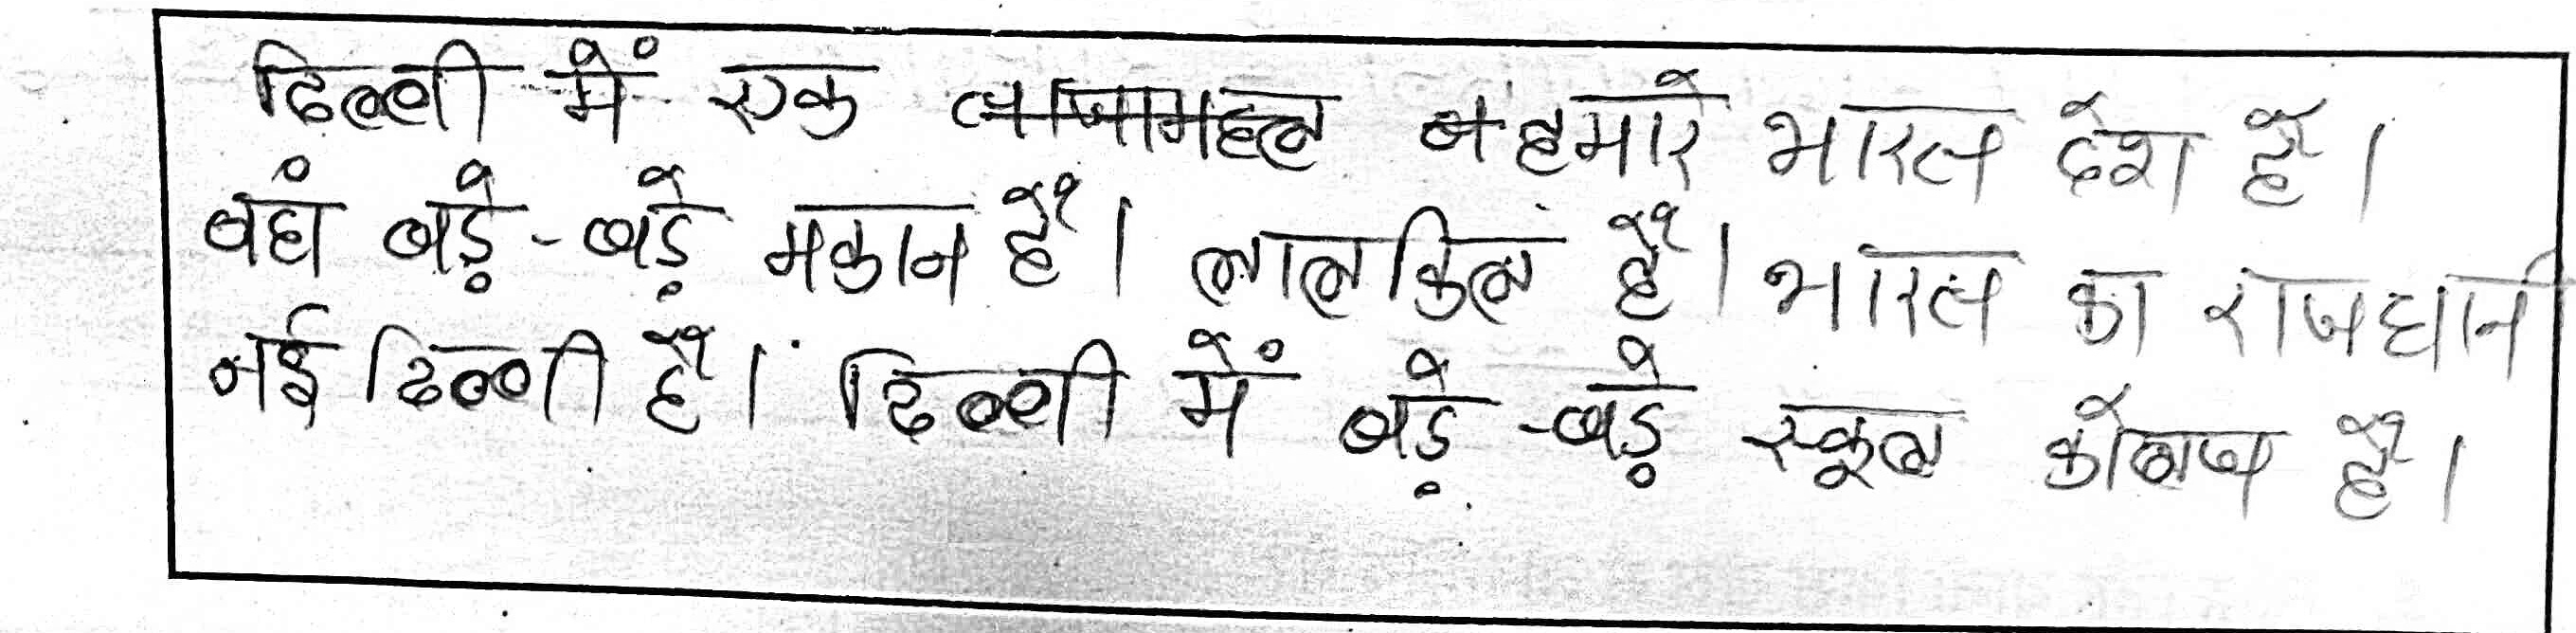 दिल्ली में एक ताजामहल ब हमारे भारत देश है।
वहां बड़े-बड़े मकान हैं। लालकिल हैं। भारत का राजधानी
नई दिल्ली हैं। दिल्ली में बड़े-बड़े स्कूल कोलेज हैं।